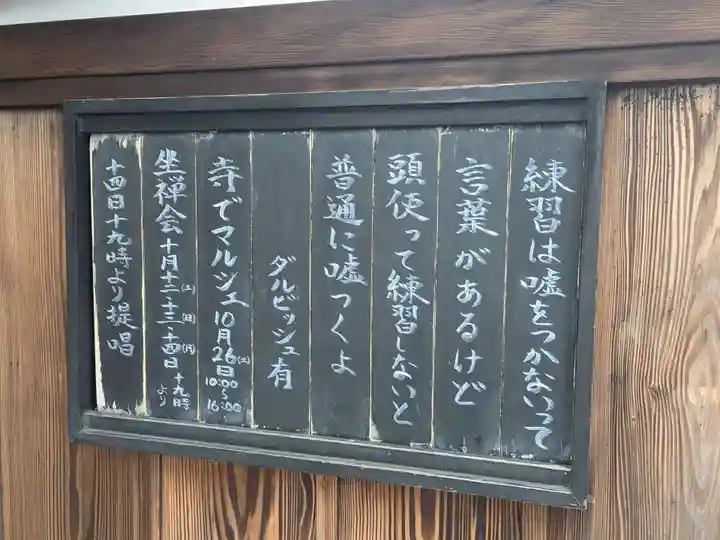 練習は嘘をつかないって
言葉があるけど
頭使って練習しないと
普通に嘘つくよ
ダルビッシュ有
寺でマルシェ10月26日(土)10:00〜16:00
坐禅会十月十二(土)・十三(日)・十四日(月)十九時より
十四日十九時より提唱